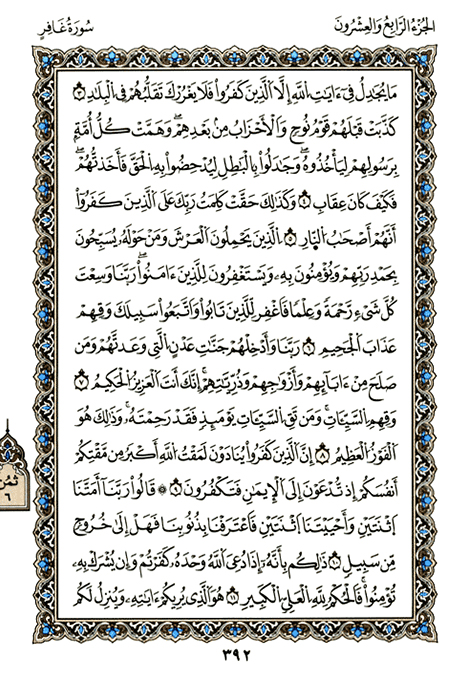 الجزء الرابع والعشرون
سورة غافر
مَا يُجَٰدِلُ فِيٓ ءَايَٰتِ ٱللَّهِ إِلَّا ٱلَّذِينَ كَفَرُواْ فَلَا يَغْرُرْكَ تَقَلُّبُهُمْ فِى ٱلْبِلَٰدِ ٣
كَذَّبَتْ قَبْلَهُمْ قَوْمُ نُوحٍ وَٱلْأَحْزَابُ مِنۢ بَعْدِهِمْ وَهَمَّتْ كُلُّ أُمَّةٍۭ
بِرَسُولِهِمْ لِيَأْخُذُوهُ وَجَٰدَلُواْ بِٱلْبَٰطِلِ لِيُدْحِضُواْ بِهِ ٱلْحَقَّ فَأَخَذتُّهُمْ
فَكَيْفَ كَانَ عِقَابِ ٤ وَكَذَٰلِكَ حَقَّتْ كَلِمَٰتُ رَبِّكَ عَلَى ٱلَّذِينَ كَفَرُوٓاْ
أَنَّهُمْ أَصْحَٰبُ ٱلنَّارِ ٥ ٱلَّذِينَ يَحْمِلُونَ ٱلْعَرْشَ وَمَنْ حَوْلَهُۥ يُسَبِّحُونَ
بِحَمْدِ رَبِّهِمْ وَيُؤْمِنُونَ بِهِۦ وَيَسْتَغْفِرُونَ لِلَّذِينَ ءَامَنُواْ رَبَّنَا وَسِعْتَ
كُلَّ شَىْءٍ رَّحْمَةً وَعِلْمًا فَٱغْفِرْ لِلَّذِينَ تَابُواْ وَٱتَّبَعُواْ سَبِيلَكَ وَقِهِمْ
عَذَابَ ٱلْجَحِيمِ ٦ رَبَّنَا وَأَدْخِلْهُمْ جَنَّٰتِ عَدْنٍ ٱلَّتِى وَعَدتَّهُمْ وَمَن
صَلَحَ مِنْ ءَابَآئِهِمْ وَأَزْوَٰجِهِمْ وَذُرِّيَّٰتِهِمْ إِنَّكَ أَنتَ ٱلْعَزِيزُ ٱلْحَكِيمُ ٧
وَقِهِمُ ٱلسَّيِّـَٔاتِ وَمَن تَقِ ٱلسَّيِّـَٔاتِ يَوْمَئِذٍ فَقَدْ رَحِمْتَهُۥ وَذَٰلِكَ هُوَ
ٱلْفَوْزُ ٱلْعَظِيمُ ٨ إِنَّ ٱلَّذِينَ كَفَرُواْ يُنَادَوْنَ لَمَقْتُ ٱللَّهِ أَكْبَرُ مِن مَّقْتِكُمْ
أَنفُسَكُمْ إِذْ تُدْعَوْنَ إِلَى ٱلْإِيمَٰنِ فَتَكْفُرُونَ ٩ ۞ قَالُواْ رَبَّنَآ أَمَتَّنَا
ٱثْنَتَيْنِ وَأَحْيَيْتَنَا ٱثْنَتَيْنِ فَٱعْتَرَفْنَا بِذُنُوبِنَا فَهَلْ إِلَىٰ خُرُوجٍ
مِّن سَبِيلٍ ١٠ ذَٰلِكُم بِأَنَّهُۥٓ إِذَا دُعِىَ ٱللَّهُ وَحْدَهُۥ كَفَرْتُمْ وَإِن يُشْرَكْ بِهِۦ
تُؤْمِنُواْ فَٱلْحُكْمُ لِلَّهِ ٱلْعَلِىِّ ٱلْكَبِيرِ ١١ هُوَ ٱلَّذِى يُرِيكُمْ ءَايَٰتِهِۦ وَيُنَزِّلُ لَكُم
ثمن
٦
٣٩٢